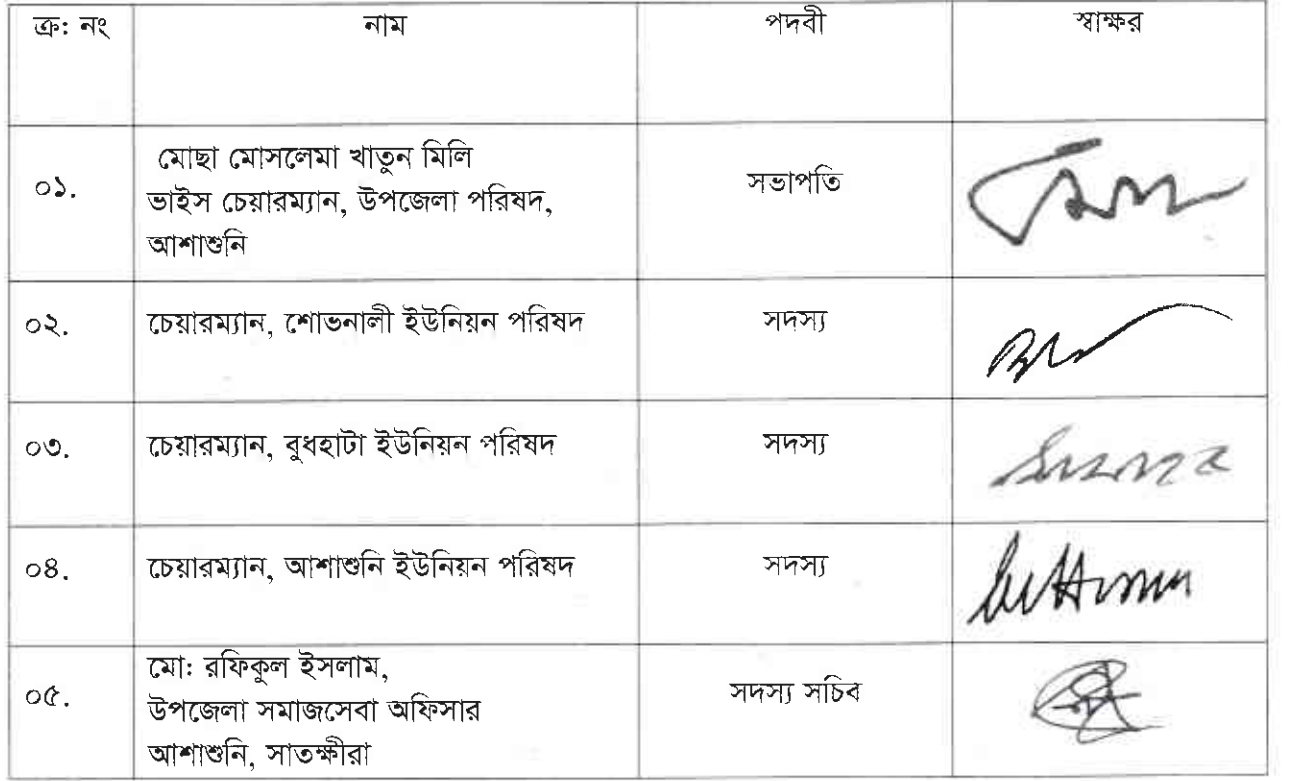 ক্র: নং নাম পদবী স্বাক্ষর
মোছা মোসলেমা খাতুন মিলি
০১. ভাইস চেয়ারম্যান, উপজেলা পরিষদ, সভাপতি
আশাশুনি
০২. চেয়ারম্যান, শোভনালী ইউনিয়ন পরিষদ সদস্য
০৩. চেয়ারম্যান, বুধহাটা ইউনিয়ন পরিষদ সদস্য
০৪. চেয়ারম্যান, আশাশুনি ইউনিয়ন পরিষদ সদস্য
মো: রফিকুল ইসলাম,
০৫. উপজেলা সমাজসেবা অফিসার সদস্য সচিব
আশাশুনি, সাতক্ষীরা